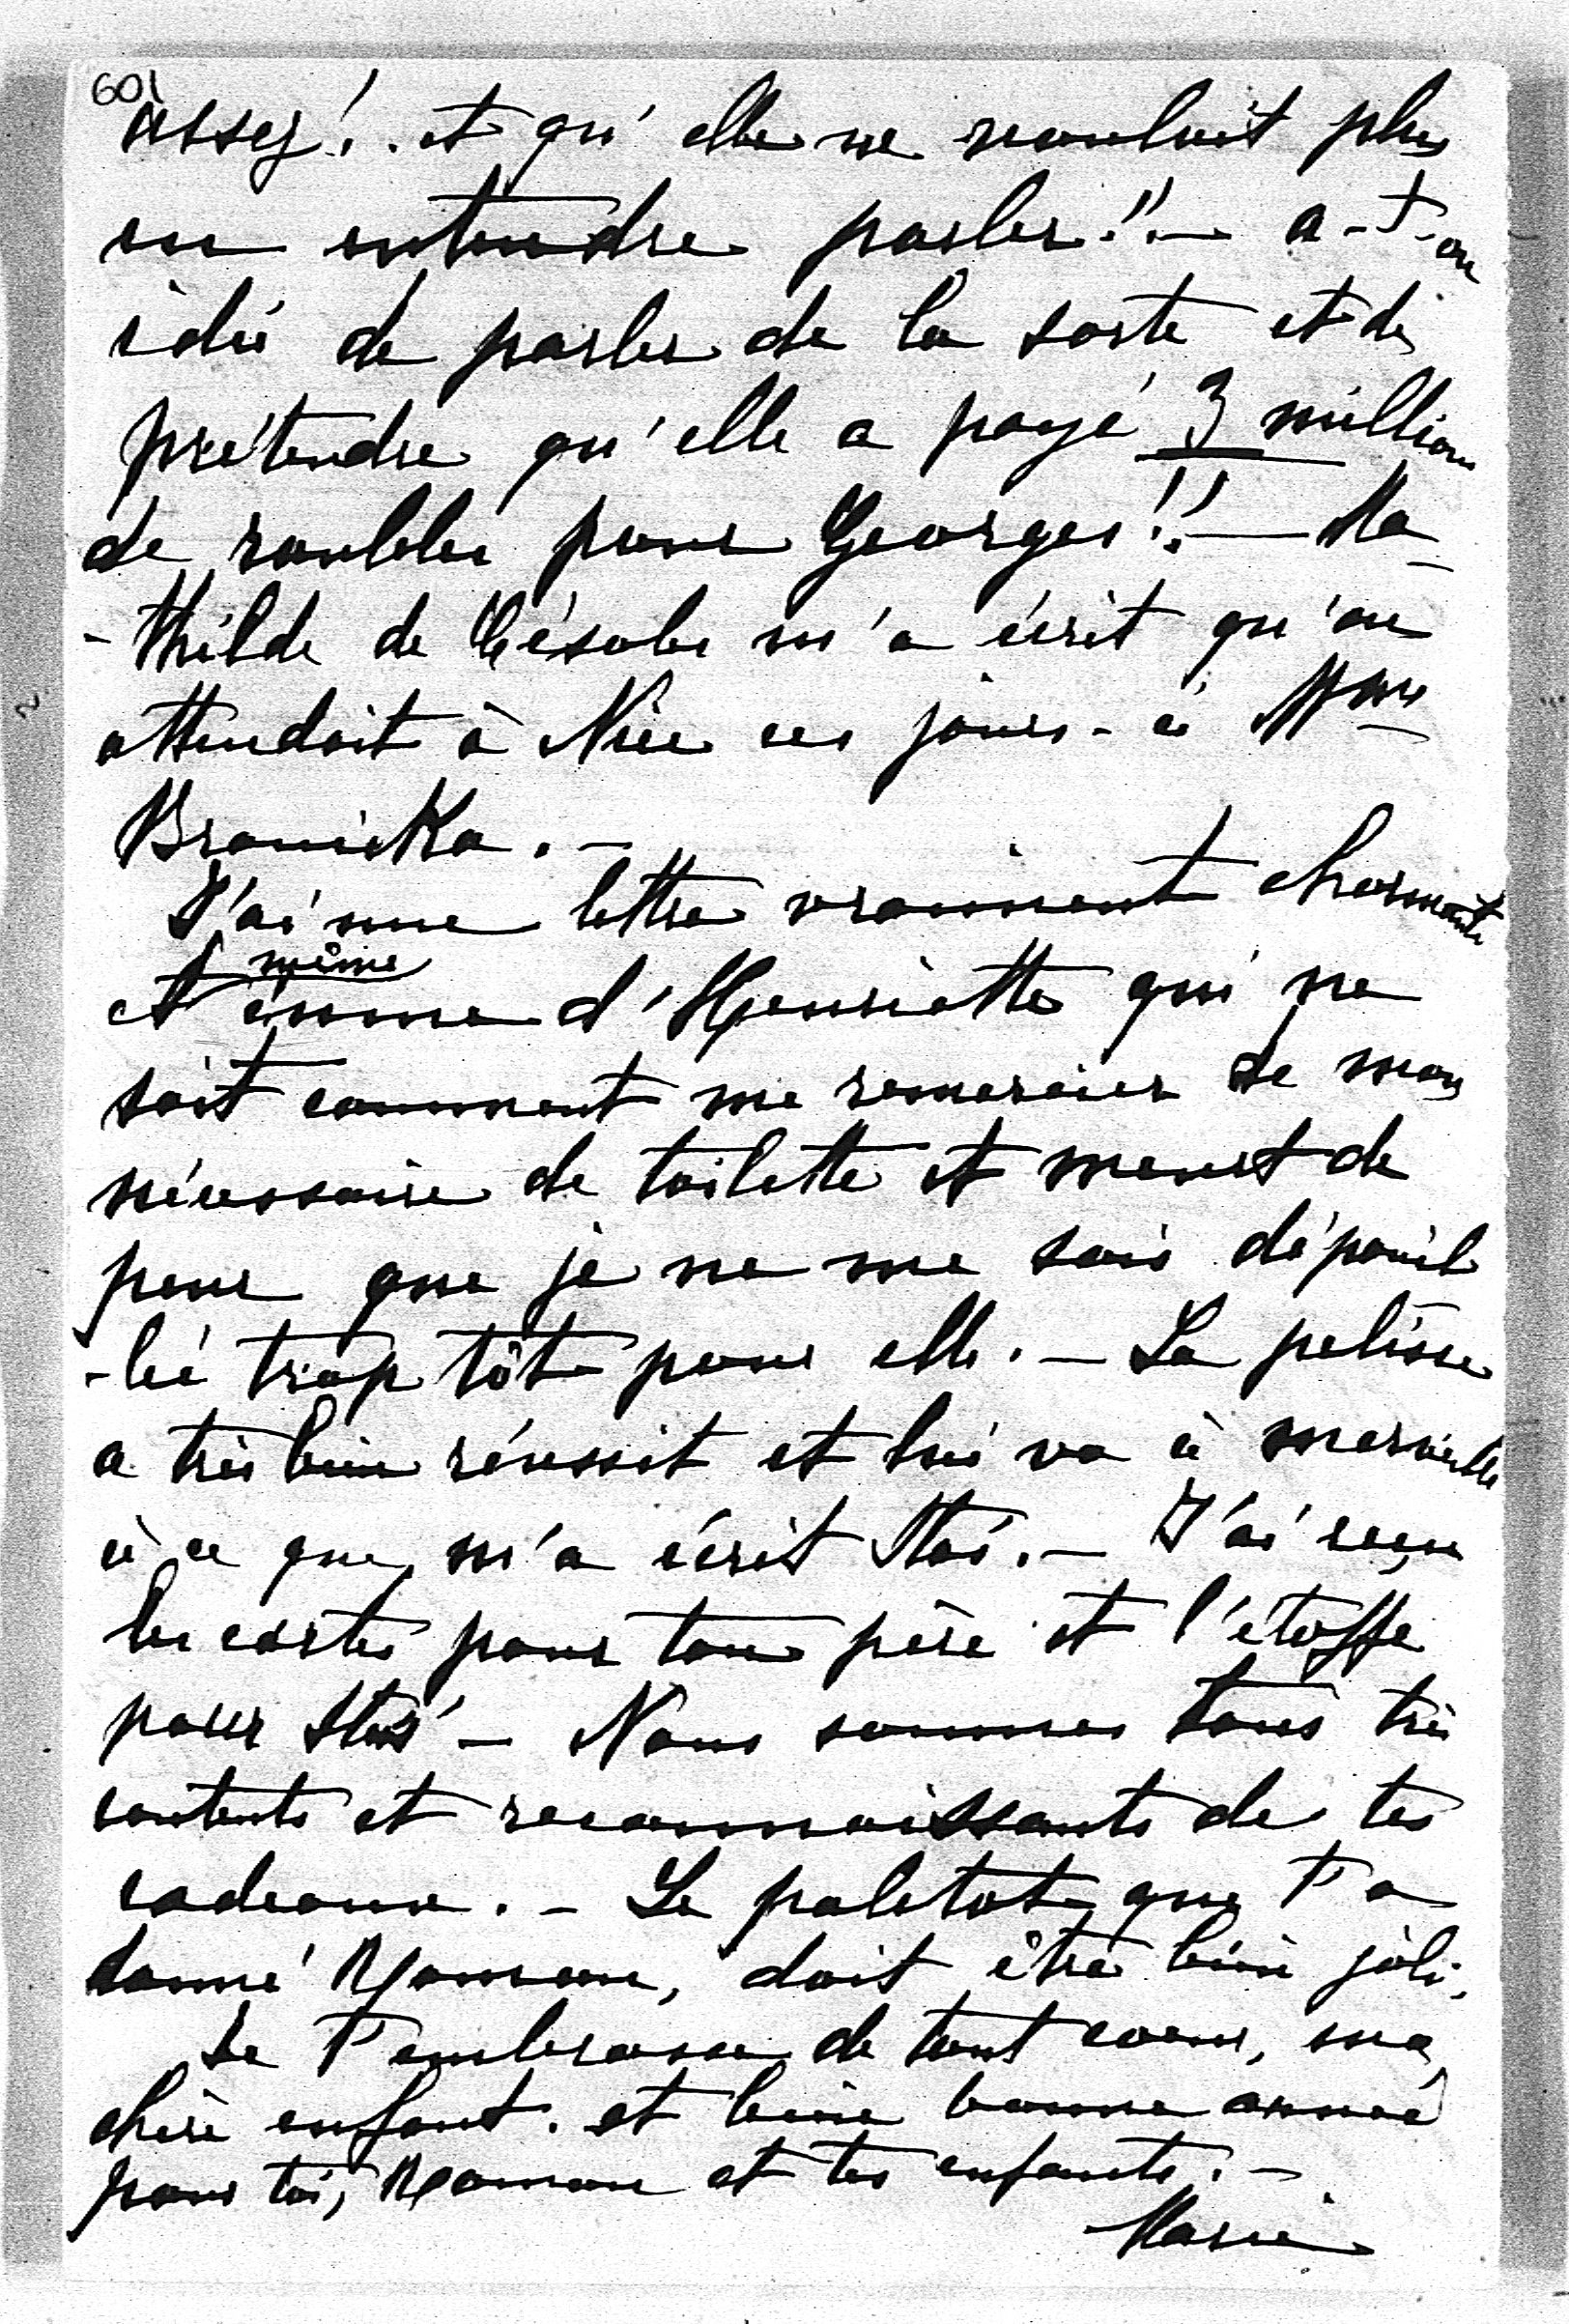 601
assez!.. et qu'elle ne voulait plus
en entendre parler!! — a-t-on
idée de parler de la sorte et de
prétendre qu'elle a payé 3 millions
de roubles pour Georges!! — Ma-
-thilde de Césole m'a écrit qu'on
attendait à Nice ces jours-ci Mme
Branicka. —
J'ai une lettre vraiment charmante
et même émue d'Henriette qui ne
sait comment me remercier de mon
nécessaire de toilette et meurt de
peur que je ne me sois dépouil
-lée trop tôt pour elle. — La pelisse
a très bien réussit et lui va à merveille
à ce que m'a écrit Stas. — J'ai reçu
les cartes pour ton père et l'étoffe
pour Stas — Nous sommes tous très
contents et reconnaissants de tes
cadeaux. — Le paletot que t'a
donné Maman, doit être bien joli.
Je t'embrasse de tout coeur, ma
chère enfant. et bien bonne année
pour toi, Maman et tes enfants. —
Marie